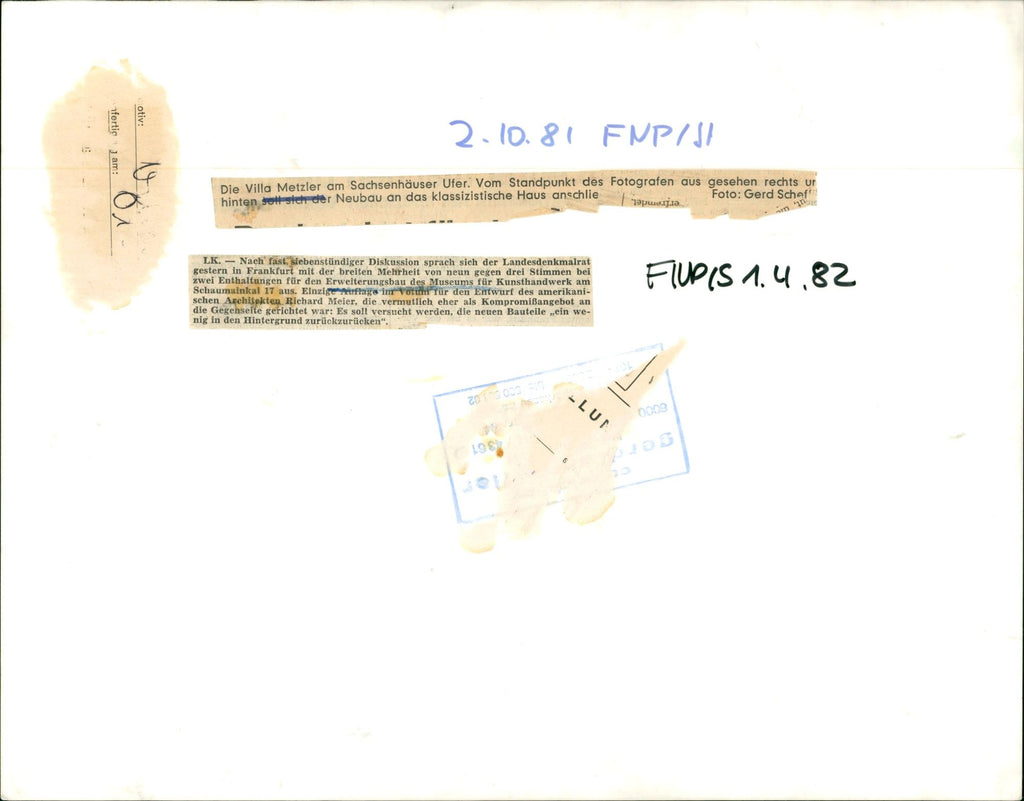 otiv:
am:
2.10.81 FNP/SI
Die Villa Metzler am Sachsenhäuser Ufer. Vom Standpunkt des Fotografen aus gesehen rechts
hinten soll sich der Neubau an das klassizistische Haus anschlie
Foto: Gerd Schef
erfremdet
LK. — Nach fast siebenstündiger Diskussion sprach sich der Landesdenkmalrat
gestern in Frankfurt mit der breiten Mehrheit von neun gegen drei Stimmen bei
zwei Enthaltungen für den Erweiterungsbau des Museums für Kunsthandwerk am
Schaumainkai 17 aus. Einzige Auflage im Votum für den Entwurf des amerikani-
schen Architekten Richard Meier, die vermutlich eher als Kompromißangebot an
die Gegenseite gerichtet war: Es soll versucht werden, die neuen Bauteile „ein we-
nig in den Hintergrund zurückzurücken“.
FNP/S 1.4.82
LLUN
6000
4361